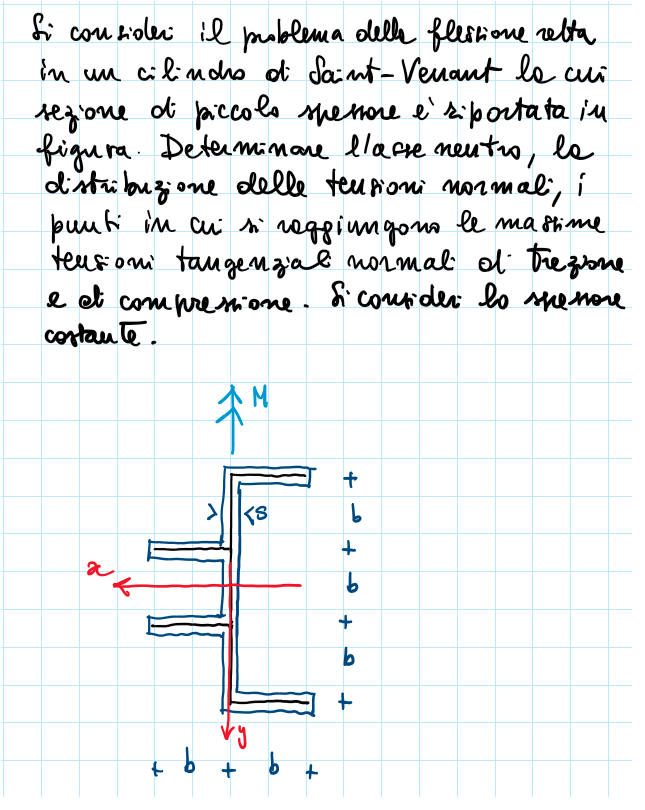 Si consideri il problema della flessione retta
in un cilindro di Saint-Venant la cui
sezione di piccolo spessore è riportata in
figura. Determinare l'asse neutro, la
distribuzione delle tensioni normali, i
punti in cui si raggiungono le massime
tensioni tangenziali normali di trazione
e di compressione. Si consideri lo spessore
costante.
M
s
b
x
b
b
y
b b